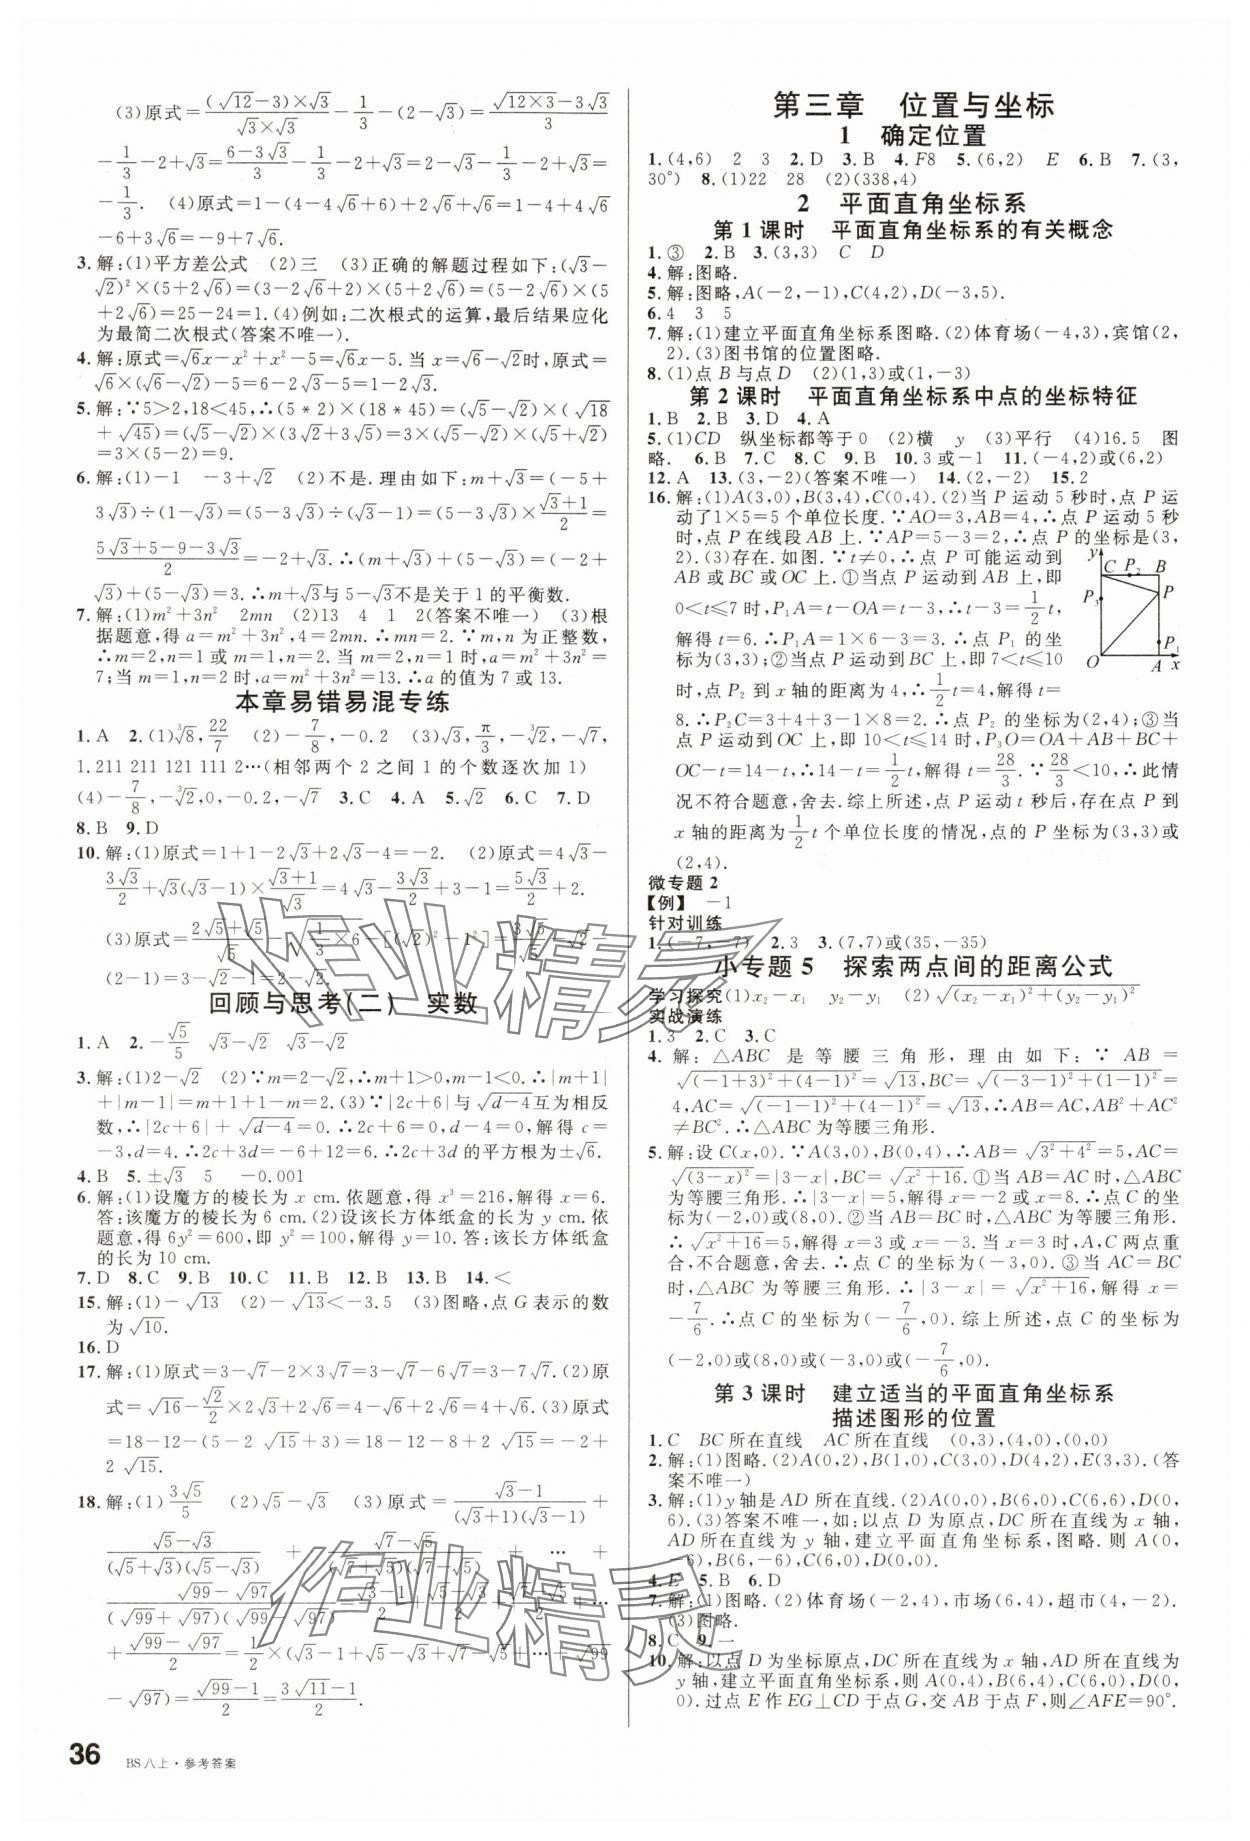 (3)原式=(√12-3)×√3/√3×√3-1/3-(2-√3)=√12×3-3√3/3
-1/3-2+√3=6-3√3/3-1/3-2+√3=2-√3-1/3-2+√3=
-1/3. (4)原式=1-(4-4√6+6)+2√6+√6=1-4+4√6
-6+3√6=-9+7√6.
3.解:(1)平方差公式 (2)三 (3)正确的解题过程如下:(√3-
√2)²×(5+2√6)=(3-2√6+2)×(5+2√6)=(5-2√6)×(5
+2√6)=25-24=1.(4)例如:二次根式的运算,最后结果应化
为最简二次根式(答案不唯一).
4.解:原式=√6x-x²+x²-5=√6x-5.当x=√6-√2时,原式=
√6×(√6-√2)-5=6-2√3-5=1-2√3.
5.解:∵5>2,18<45,∴(5*2)×(18*45)=(√5-√2)×(√18
+√45)=(√5-√2)×(3√2+3√5)=3(√5-√2)×(√5+√2)
=3×(5-2)=9.
6.解:(1)-1 -3+√2 (2)不是.理由如下:m+√3=(-5+
3√3)÷(1-√3)=(5-3√3)÷(√3-1)=(5-3√3)×√3+1/2=
5√3+5-9-3√3/2=-2+√3.∴(m+√3)+(5-√3)=(-2+
√3)+(5-√3)=3.∴m+√3与5-√3不是关于1的平衡数.
7.解:(1)m²+3n² 2mn (2)13 4 1 2(答案不唯一) (3)根
据题意,得a=m²+3n²,4=2mn.∴mn=2.∵m,n为正整数,
∴m=2,n=1或m=1,n=2.当m=2,n=1时,a=m²+3n²=
7;当m=1,n=2时,a=m²+3n²=13.∴a的值为7或13.
本章易错易混专练
1.A 2.(1)³√8,22/7 (2)-7/8,-0.2 (3)√3,π/3,-³√2,-√7,
1.211 211 121 111 2…(相邻两个2之间1的个数逐次加1)
(4)-7/8,-³√2,0,-0.2,-√7 3.C 4.A 5.√2 6.C 7.D
8.B 9.D
10.解:(1)原式=1+1-2√3+2√3-4=-2. (2)原式=4√3-
3√3/2+√3(√3-1)×√3+1/√3=4√3-3√3/2+3-1=5√3/2+2.
(3)原式=2√5+√5/√5-√1/3×6-[(√2)²-1²]=3√5/√5-√2
-(2-1)=3-√2-1=2-√2.
回顾与思考(二) 实数
1.A 2.-√5/5 √3-√2 √3-√2
3.解:(1)2-√2 (2)∵m=2-√2,∴m+1>0,m-1<0.∴|m+1|
+|m-1|=m+1+1-m=2.(3)∵|2c+6|与√d-4互为相反
数,∴|2c+6|+√d-4=0.∴2c+6=0,d-4=0,解得c=
-3,d=4.∴2c+3d=-6+12=6.∴2c+3d的平方根为±√6.
4.B 5.±√3 5 -0.001
6.解:(1)设魔方的棱长为x cm.依题意,得x³=216,解得x=6.
答:该魔方的棱长为6 cm.(2)设该长方体纸盒的长为y cm.依
题意,得6y²=600,即y²=100,解得y=10.答:该长方体纸盒
的长为10 cm.
7.D 8.C 9.B 10.C 11.B 12.B 13.B 14.<
15.解:(1)-√13 (2)-√13<-3.5 (3)图略,点G表示的数
为√10.
16.D
17.解:(1)原式=3-√7-2×3√7=3-√7-6√7=3-7√7.(2)原
式=√16-√2/2×2√3+2√6=4-√6+2√6=4+√6.(3)原式
=18-12-(5-2√15+3)=18-12-8+2√15=-2+
2√15.
18.解:(1)3√5/5 (2)√5-√3 (3)原式=√3-1/(√3+1)(√3-1)+
√5-√3/(√5+√3)(√5-√3)+√7-√5/(√7+√5)(√7-√5)+…+
√99-√97/(√99+√97)(√99-√97)=√3-1/2+√5-√3/2+√7-√5/2+…
+√99-√97/2=1/2×(√3-1+√5-√3+√7-√5+…+√99
-√97)=√99-1/2=3√11-1/2.
36 BS八上·参考答案
第三章 位置与坐标
1 确定位置
1.(4,6) 2 3 2.D 3.B 4.F8 5.(6,2) E 6.B 7.(3,
30°) 8.(1)22 28 (2)(338,4)
2 平面直角坐标系
第1课时 平面直角坐标系的有关概念
1.③ 2.B 3.(3,3) C D
4.解:图略.
5.解:图略,A(-2,-1),C(4,2),D(-3,5).
6.4 3 5
7.解:(1)建立平面直角坐标系图略.(2)体育场(-4,3),宾馆(2,
2).(3)图书馆的位置图略.
8.(1)点B与点D (2)(1,3)或(1,-3)
第2课时 平面直角坐标系中点的坐标特征
1.B 2.B 3.D 4.A
5.(1)CD 纵坐标都等于0 (2)横 y (3)平行 (4)16.5 图
略. 6.B 7.C 8.C 9.B 10.3或-1 11.(-4,2)或(6,2)
12.A 13.(3,-2)(答案不唯一) 14.(2,-2) 15.2
16.解:(1)A(3,0),B(3,4),C(0,4).(2)当P运动5秒时,点P运
动了1×5=5个单位长度.∵AO=3,AB=4,∴点P运动5秒
时,点P在线段AB上.∵AP=5-3=2,∴点P的坐标是(3,
2).(3)存在.如图.∵t≠0,∴点P可能运动到
AB或BC或OC上.①当点P运动到AB上,即
0<t≤7时,P₁A=t-OA=t-3,∴t-3=1/2t,
解得t=6.∴P₁A=1×6-3=3.∴点P₁的坐
标为(3,3);②当点P运动到BC上,即7<t≤10
时,点P₂到x轴的距离为4,∴1/2t=4,解得t=
8.∴P₂C=3+4+3-1×8=2.∴点P₂的坐标为(2,4);③当
点P运动到OC上,即10<t≤14时,P₃O=OA+AB+BC+
OC-t=14-t,∴14-t=1/2t,解得t=28/3.∵28/3<10,∴此情
况不符合题意,舍去.综上所述,点P运动t秒后,存在点P到
x轴的距离为1/2t个单位长度的情况,点的P坐标为(3,3)或
(2,4).
y
C P₂ B
P₃ P
P₁
O A x
微专题2
【例】 -1
针对训练
1.(-7,-7) 2.3 3.(7,7)或(35,-35)
小专题5 探索两点间的距离公式
学习探究(1)x₂-x₁ y₂-y₁ (2)√(x₂-x₁)²+(y₂-y₁)²
实战演练
1.3 2.C 3.C
4.解:△ABC是等腰三角形,理由如下:∵AB=
√(-1+3)²+(4-1)²=√13,BC=√(-3-1)²+(1-1)²=
4,AC=√(-1-1)²+(4-1)²=√13,∴AB=AC,AB²+AC²
≠BC².∴△ABC为等腰三角形.
5.解:设C(x,0).∵A(3,0),B(0,4),∴AB=√3²+4²=5,AC=
√(3-x)²=|3-x|,BC=√x²+16.①当AB=AC时,△ABC
为等腰三角形.∴|3-x|=5,解得x=-2或x=8.∴点C的坐
标为(-2,0)或(8,0).②当AB=BC时,△ABC为等腰三角形.
∴√x²+16=5,解得x=3或x=-3.当x=3时,A,C两点重
合,不合题意,舍去.∴点C的坐标为(-3,0).③当AC=BC
时,△ABC为等腰三角形.∴|3-x|=√x²+16,解得x=
-7/6.∴点C的坐标为(-7/6,0).综上所述,点C的坐标为
(-2,0)或(8,0)或(-3,0)或(-7/6,0).
第3课时 建立适当的平面直角坐标系
描述图形的位置
1.C BC所在直线 AC所在直线 (0,3),(4,0),(0,0)
2.解:(1)图略.(2)A(0,2),B(1,0),C(3,0),D(4,2),E(3,3).(答
案不唯一)
3.解:(1)y轴是AD所在直线.(2)A(0,0),B(6,0),C(6,6),D(0,
6).(3)答案不唯一,如:以点D为原点,DC所在直线为x轴,
AD所在直线为y轴,建立平面直角坐标系,图略.则A(0,
-6),B(6,-6),C(6,0),D(0,0).
4.E 5.B 6.D
7.解:(1)图略.(2)体育场(-2,4),市场(6,4),超市(4,-2).
(3)图略.
8.C 9.一
10.解:以点D为坐标原点,DC所在直线为x轴,AD所在直线为
y轴,建立平面直角坐标系,则A(0,4),B(6,4),C(6,0),D(0,
0).过点E作EG⊥CD于点G,交AB于点F,则∠AFE=90°.
作业精灵
作业精灵